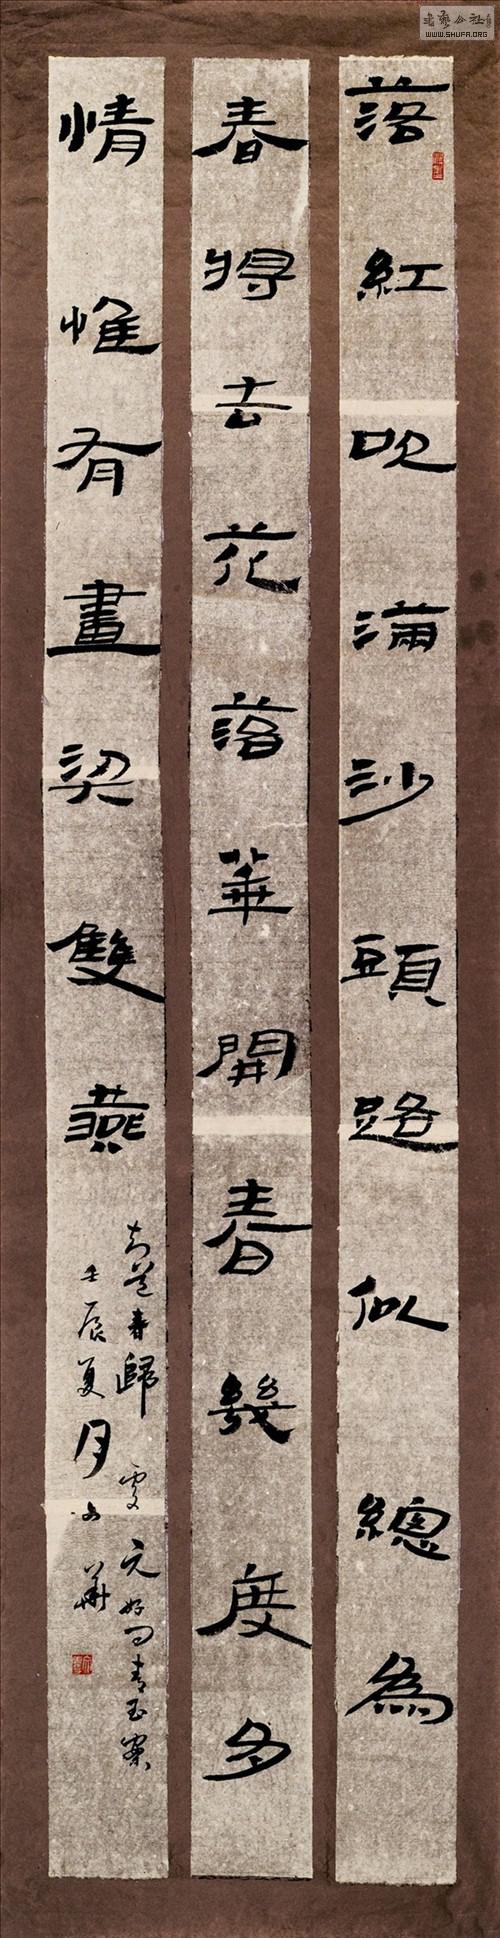 書藝公社
WWW.SHUFA.ORG
落紅吹滿沙頭路似總為
春將去花落華開春幾度多
情惟有畫梁雙燕
知道春歸處元好问青玉案
壬辰夏月華